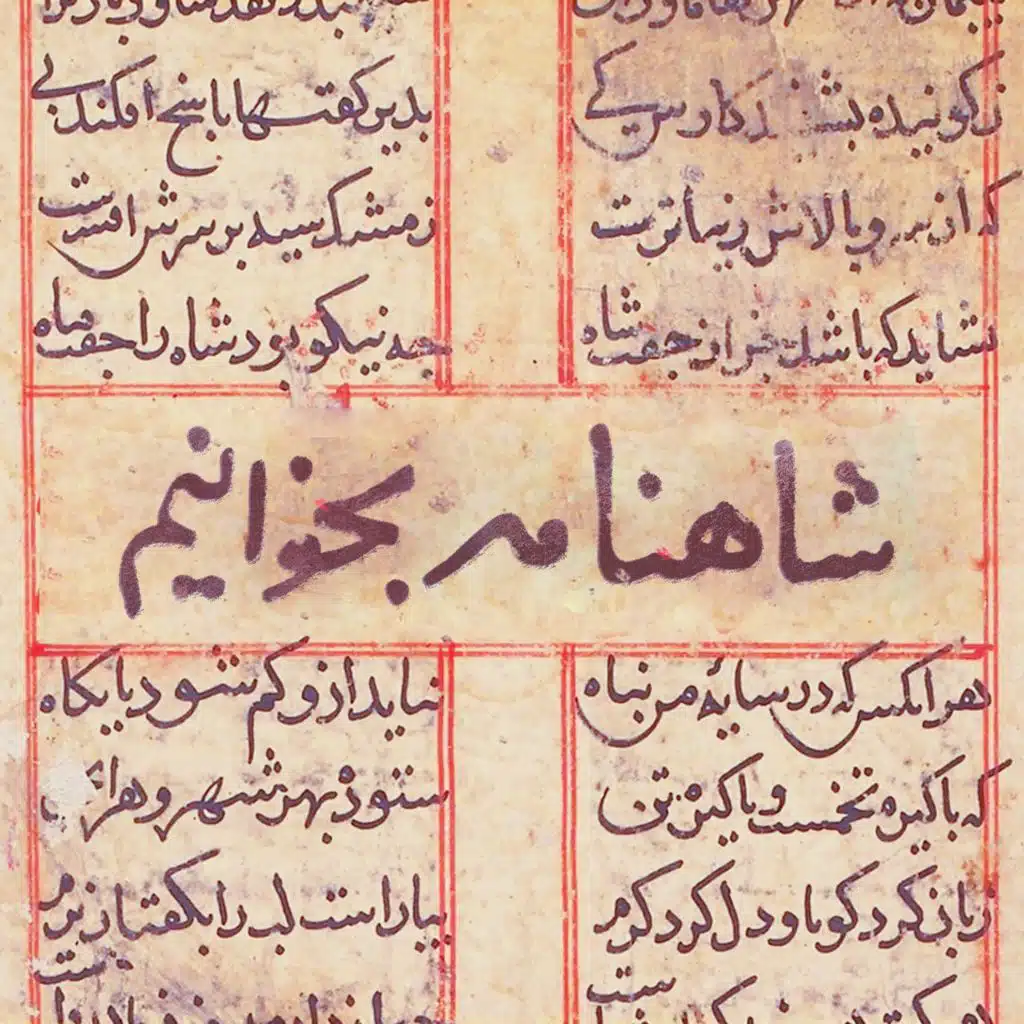 ز گوینده بشنید کاوس کی
بدین گفتها پاسخ افکند پی
که از سرو بالاش زیباترست
ز مشک سیه بر سرش افسرست
نشاید که باشد جز از جفت شاه
چه نیکو بود شاه را جفت ماه
شاهنامه بخوانیم
هر انکس که در سایهٔ من پناه
نیابد ازو کم شود پایگاه
که پاکیزه تخمست و پاکیزه تن
ستوده بهر شهر و هر
زبان کرد گویا و دل کرد گرم
بیاراست لب را بگفتار نرم